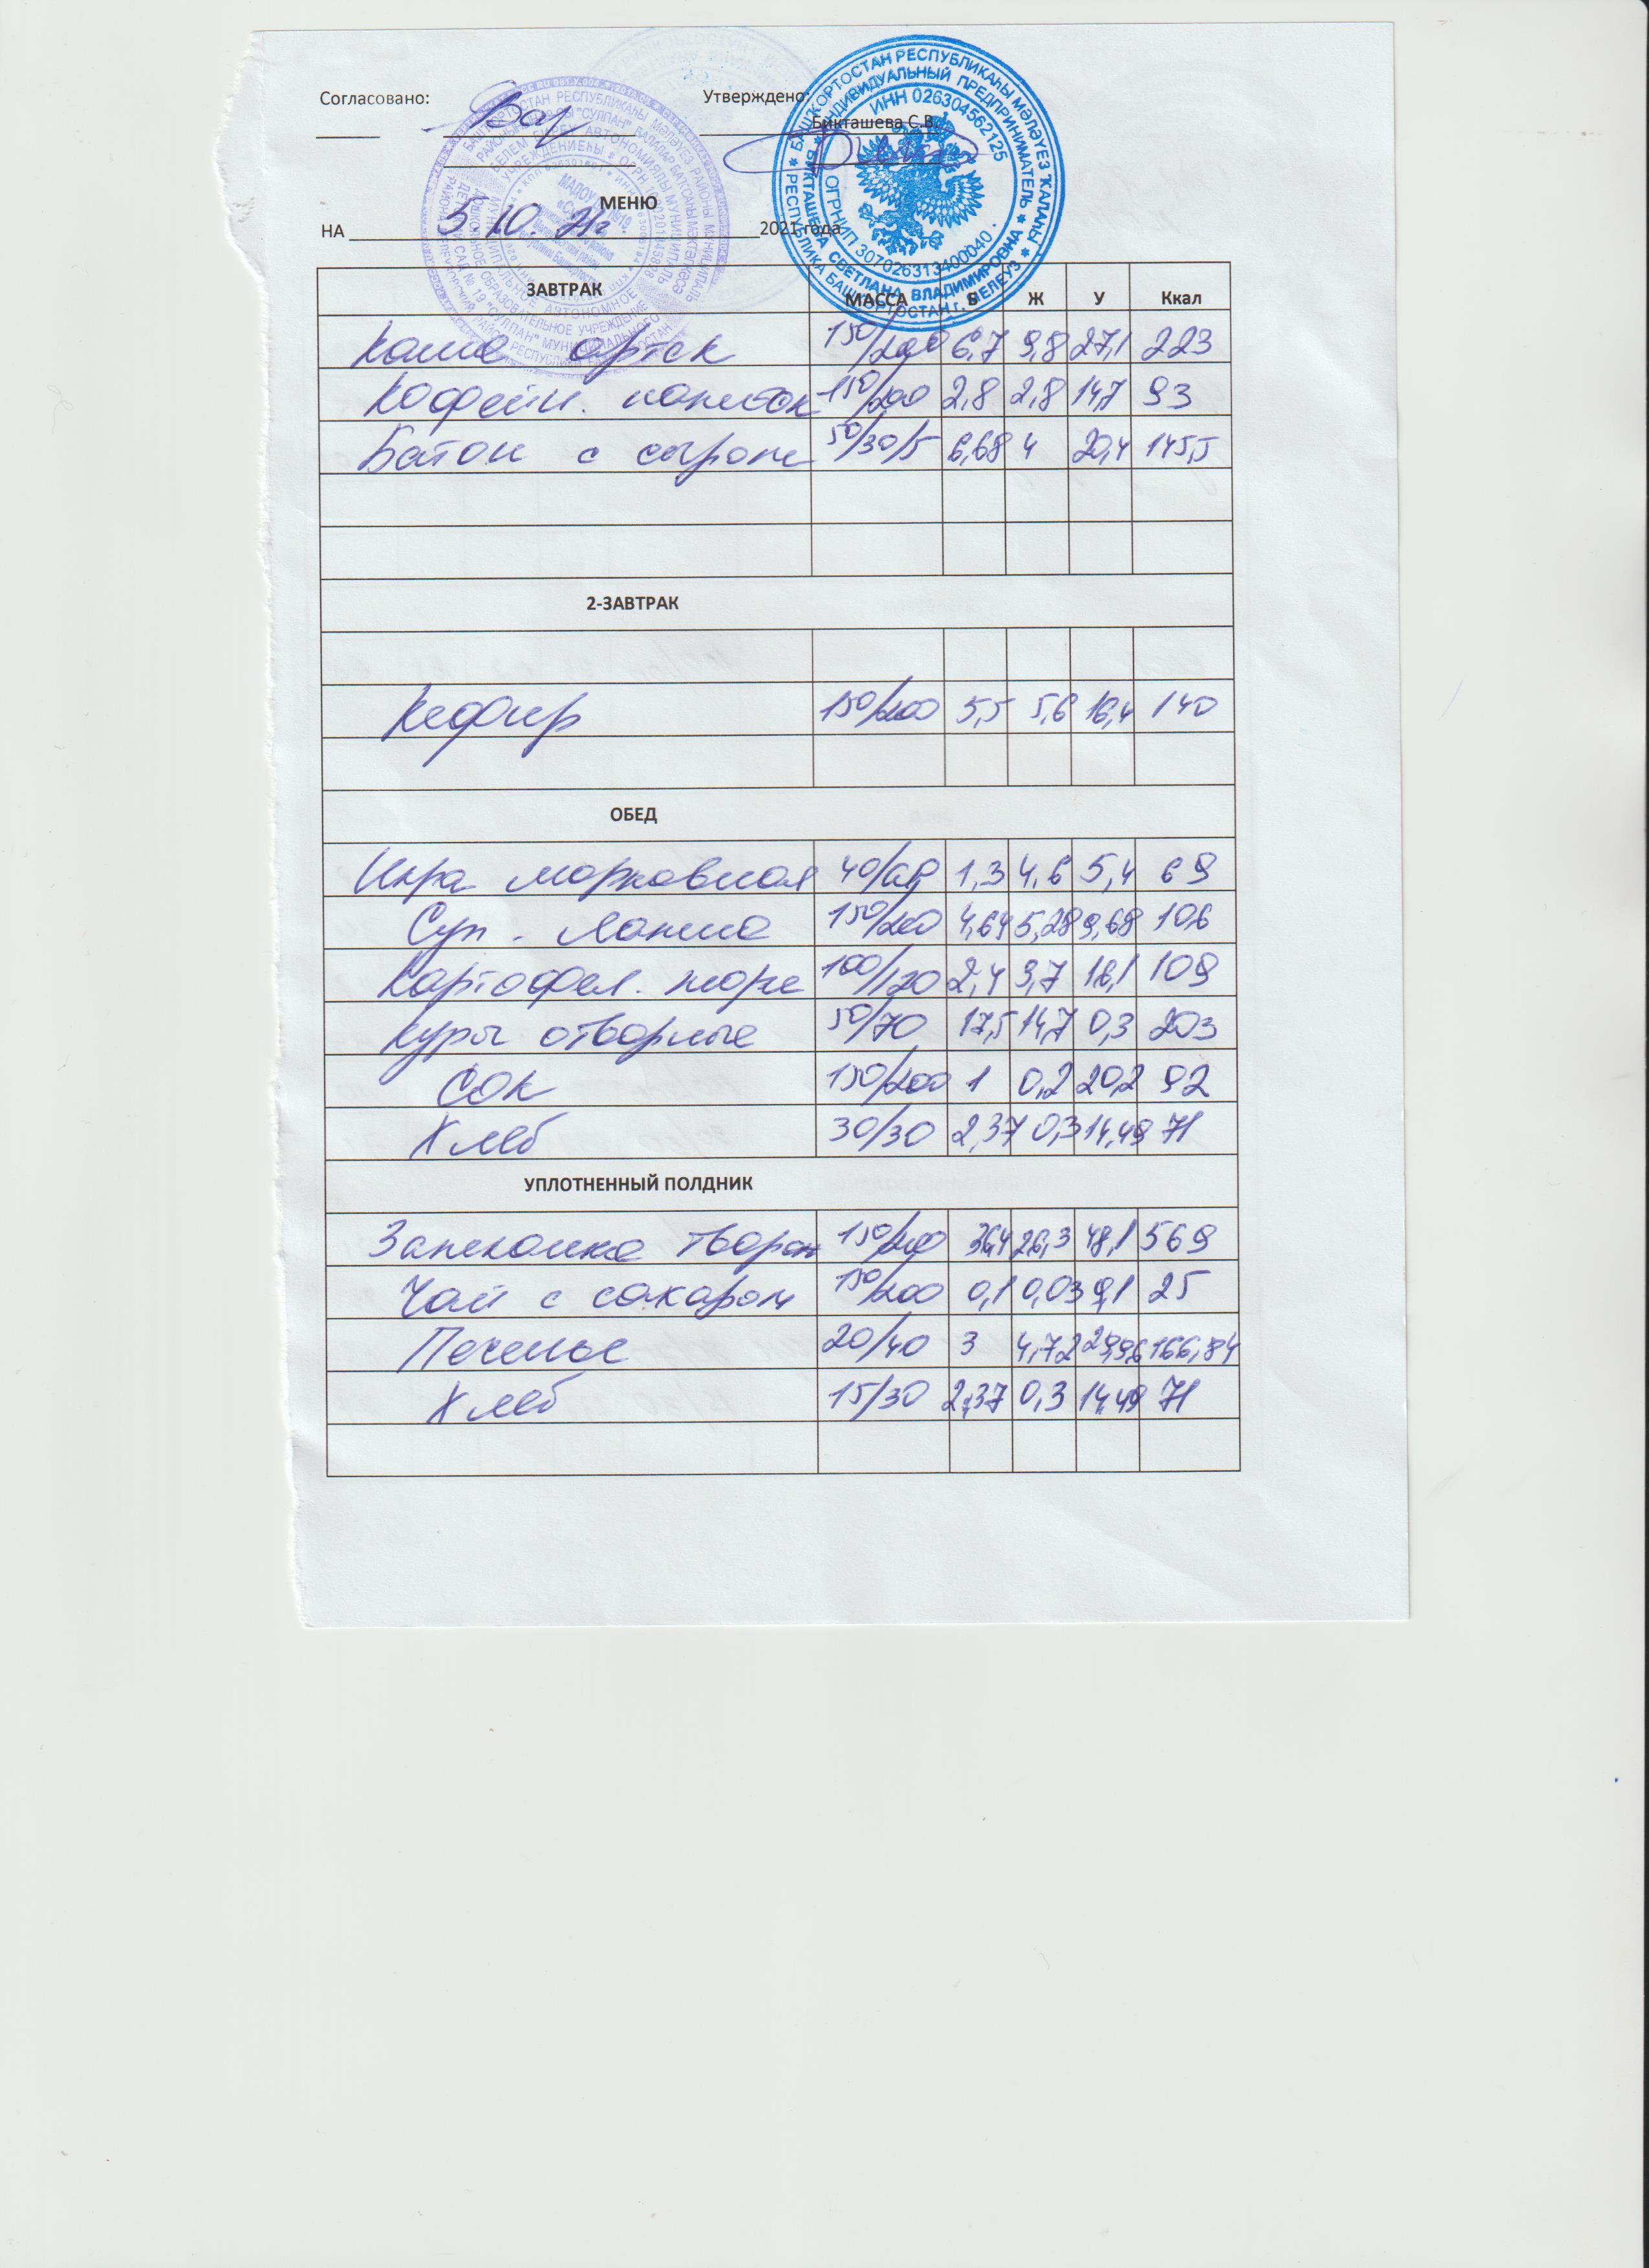 Согласовано:
Утверждено:
Бикташева С.В.
МЕНЮ
НА 5.10.21г 2021 года
ЗАВТРАК МАССА Б Ж У Ккал
Каша артек 150/200 6,7 9,8 27,1 223
Кофейн. напиток 150/200 2,8 2,8 14,7 93
Батон с сыром 50/30/5 6,68 4 20,4 145,5
2-ЗАВТРАК
Кефир 150/200 5,5 5,6 16,4 140
ОБЕД
Икра морковная 40/60 1,3 4,6 5,4 69
Суп - Лапша 150/200 4,64 5,28 9,68 106
Картофел. пюре 100/120 2,4 3,7 16,1 109
Куры отварные 50/70 17,5 14,7 0,3 203
Сок 150/200 1 0,2 20,2 92
Хлеб 30/30 2,37 0,3 14,49 71
УПЛОТНЕННЫЙ ПОЛДНИК
Запеканка творож 150/200 36,4 26,3 48,1 569
Чай с сахаром 150/200 0,1 0,03 9,1 25
Печенье 20/40 3 4,72 29,96 166,84
Хлеб 15/30 2,37 0,3 14,49 71
БАШҠОРТОСТАН РЕСПУБЛИКАҺЫ МӘЛӘҮЕЗ ҠАЛАҺЫ
РЕСПУБЛИКА БАШКОРТОСТАН г. МЕЛЕУЗ
ИНДИВИДУАЛЬНЫЙ ПРЕДПРИНИМАТЕЛЬ
БИКТАШЕВА СВЕТЛАНА ВЛАДИМИРОВНА
ИНН 026304562125
ОГРНИП 307026313400040